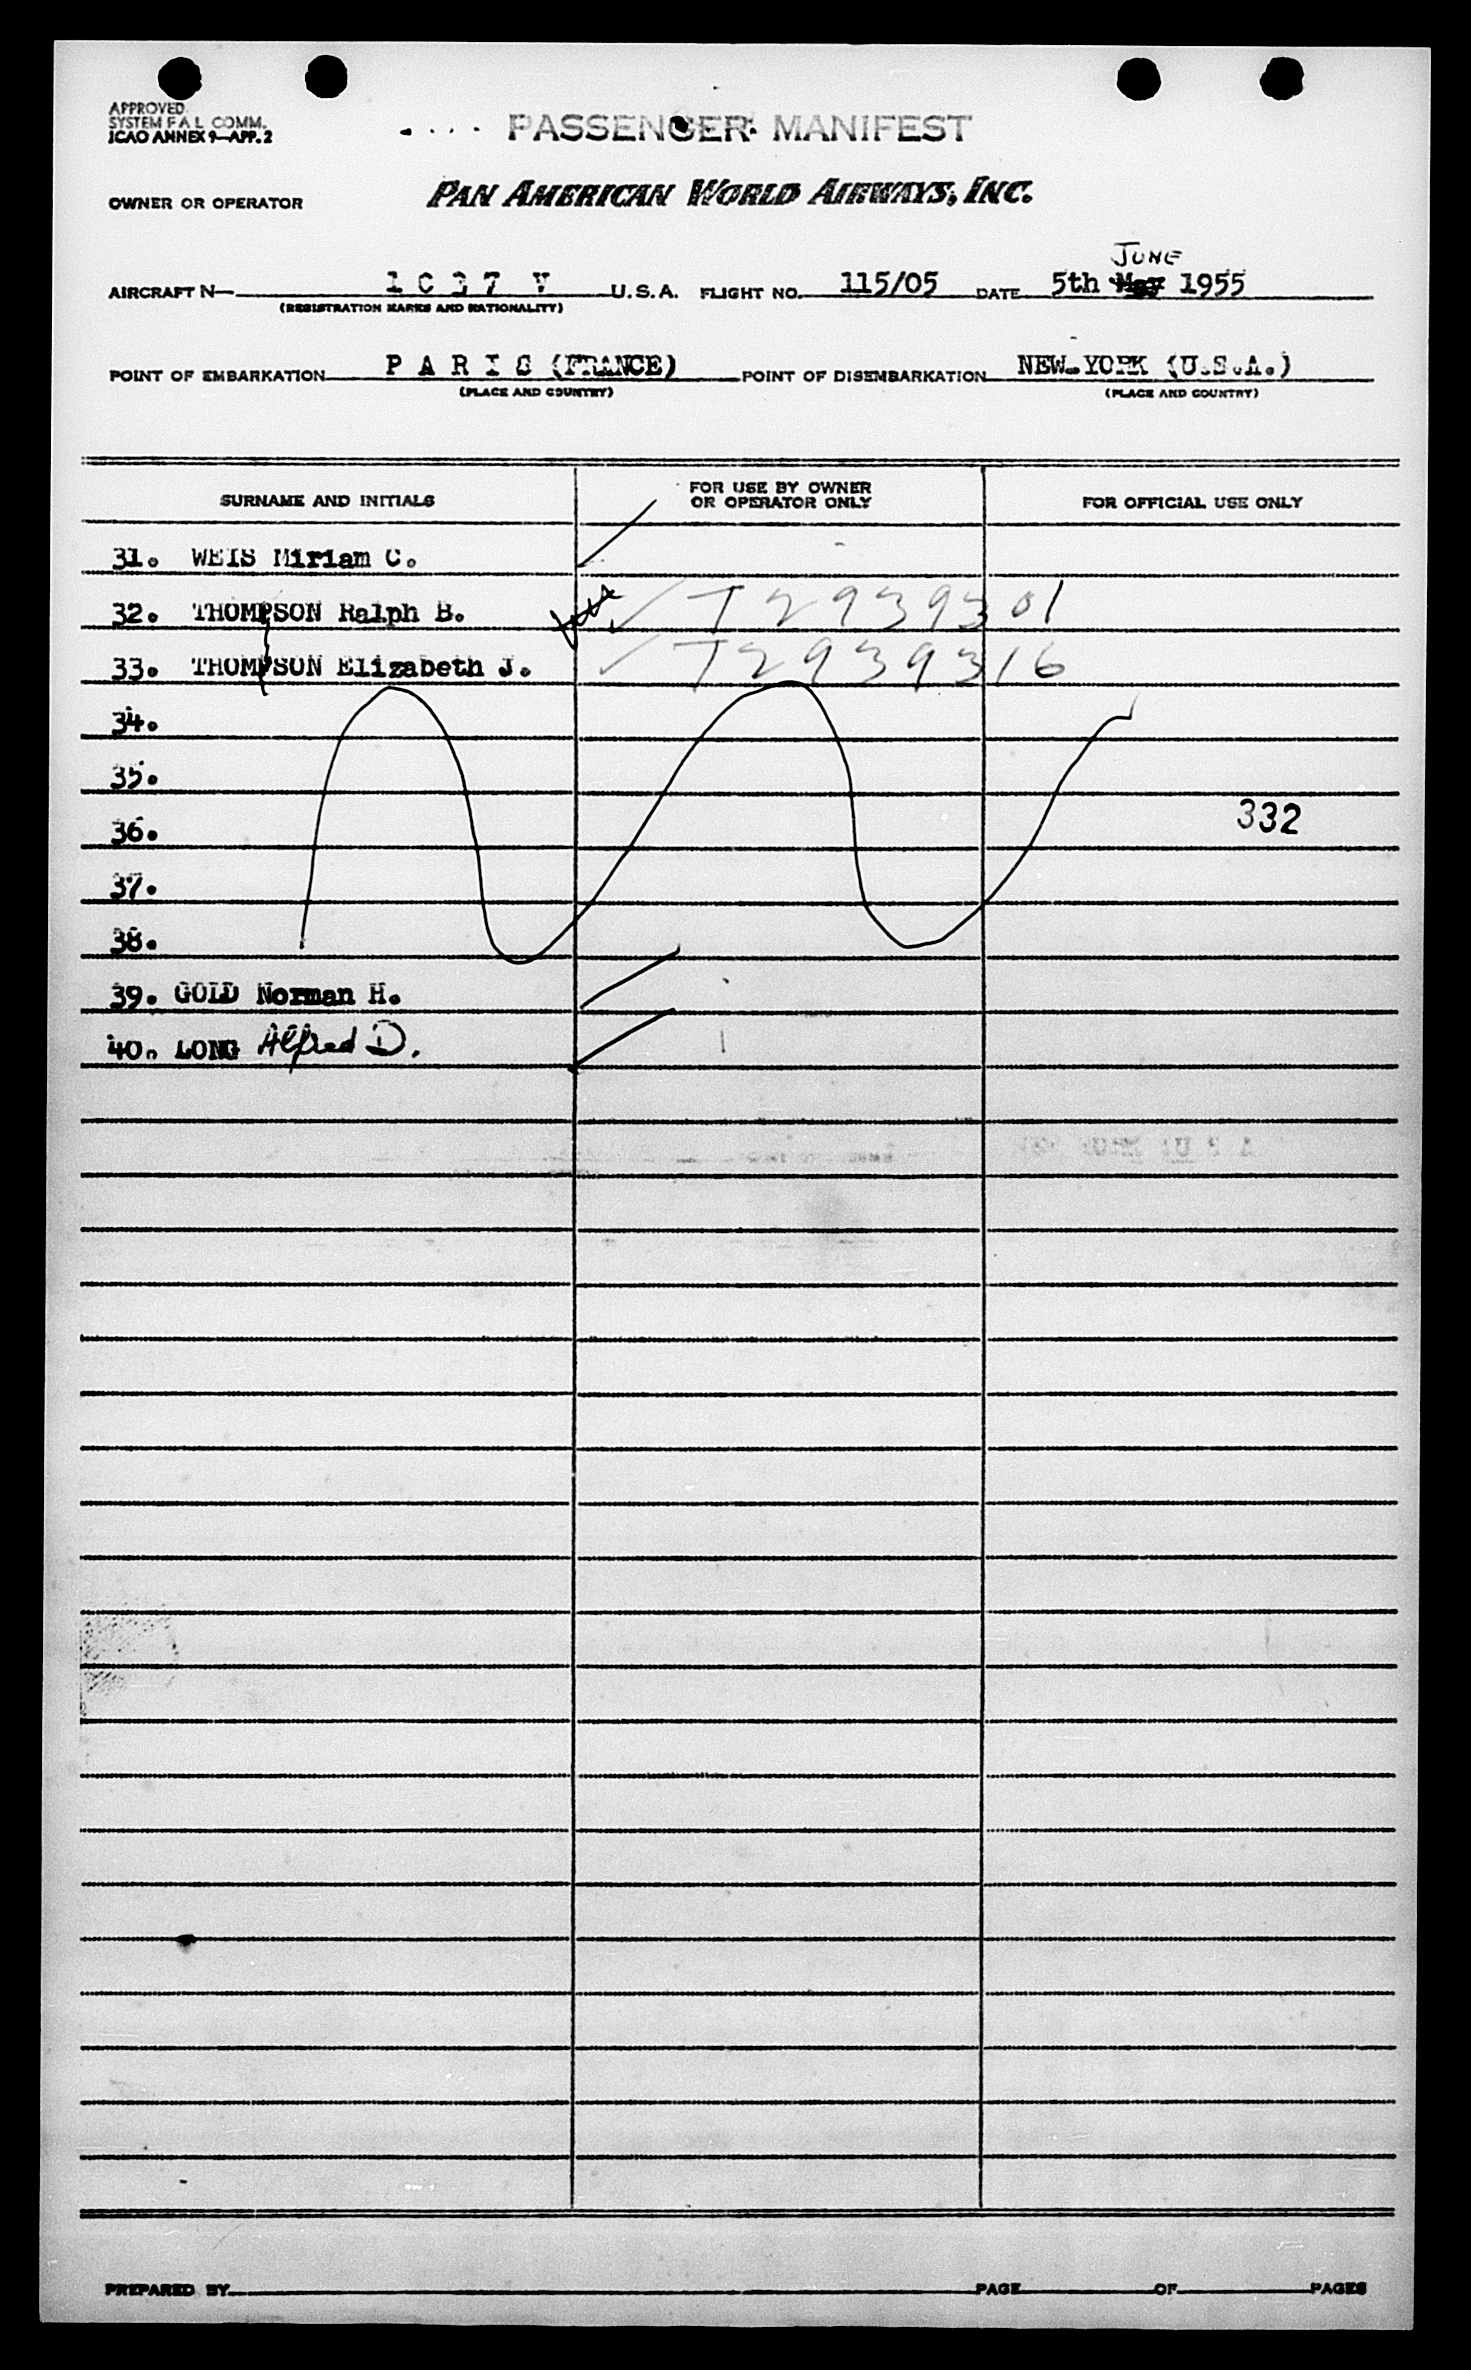 APPROVED
SYSTEM F A L COMM.
ICAO ANNEX 9—APP. 2
PASSENGER MANIFEST
OWNER OR OPERATOR PAN AMERICAN WORLD AIRWAYS, INC.
JUNE
AIRCRAFT N— 1 0 2 7 V U.S.A. FLIGHT NO. 115/05 DATE 5th May 1955
(REGISTRATION MARKS AND NATIONALITY)
POINT OF EMBARKATION P A R I S (FRANCE) POINT OF DISEMBARKATION NEW YORK (U.S.A.)
(PLACE AND COUNTRY) (PLACE AND COUNTRY)
SURNAME AND INITIALS FOR USE BY OWNER OR OPERATOR ONLY FOR OFFICIAL USE ONLY
31. WEIS Miriam C.
32. THOMPSON Ralph B. T2939301
33. THOMPSON Elizabeth J. T2939316
34.
35.
36. 332
37.
38.
39. GOLD Norman H.
40. LONG Alfred D.
PREPARED BY PAGE OF PAGES